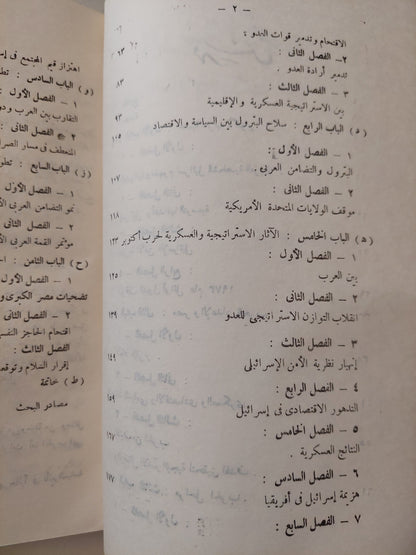 – ٢ –
الاقتحام وتدمير قوات العدو :
٢ – الفصل الثانى :
تدمير أرادة العدو . ٦٣
٣ – الفصل الثالث :
بين الاستراتيجية العسكرية والإقليمية ٨٣
(د) الباب الرابع : سلاح البترول بين السياسة والاقتصاد ٩٣
١ – الفصل الأول : ١٠٥
البترول والتضامن العربى .
٢ – الفصل الثانى : ١٠٧
موقف الولايات المتحدة الأمريكية ١١٨
(ه) الباب الخامس : الآثار الاستراتيجية والعسكرية لحرب أكتوبر ١٢٣
١ – الفصل الأول :
بين العرب ١٢٥
٢ – الفصل الثانى :
انقلاب التوازن الاستراتيجى للعدو ١٣٩
٣ – الفصل الثالث :
إنهيار نظرية الأمن الإسرائيلى ١٤٩
٤ – الفصل الرابع :
التدهور الاقتصادى فى إسرائيل ١٥٩
٥ – الفصل الخامس :
النتائج العسكرية . ١٦٧
٦ – الفصل السادس :
هزيمة إسرائيل فى أفريقيا ١٧٧
٧ – الفصل السابع :
اهتزاز قيم المجتمع فى
(و) الباب السادس :
١ – الفصل الأول :
التقارب بين العرب
٢ – الفصل الثانى :
المنعطف فى مسار
(ز) الباب السابع :
١ – الفصل الأول
نحو التضامن العربى
٢ – الفصل الثانى
مؤتمر القمة العربى
(ح) الباب الثامن :
١ – الفصل الأول
تضحيات مصر الكبرى
٢ – الفصل الثانى
اقتحام الحاجز
الفصل الثالث :
إقرار السلام
(ط) خاتمة
مصادر البحث